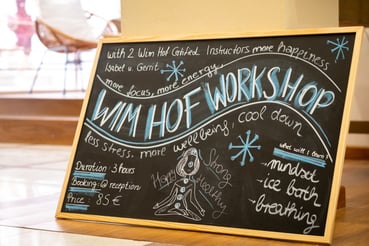 with 2 Wim Hof Certified Instructors more happiness
Isabel u. Gerrit
more focus, more energy,
WIM HOF WORKSHOP
less stress, more wellbeing, cool down
Duration: 3 hours
Booking: @ reception
Price: 85€
Happy
Strong
Healthy
what will I learn?
→ mindset
→ ice bath
→ breathing